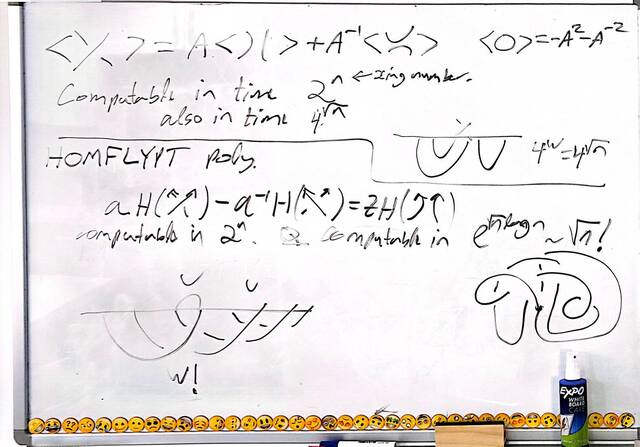 < > = A < ) ( > + A⁻¹ < > <O> = -A² - A⁻²
Computable in time 2ⁿ ← xing number.
also in time 4^√n
4^w = 4^√n
HOMFLYPT poly.
a H( ) - a⁻¹ H( ) = z H( )
computable in 2ⁿ. computable in e^(√n log n) ~ √n!
w!
EXPO
WHITE
BOARD
CARE